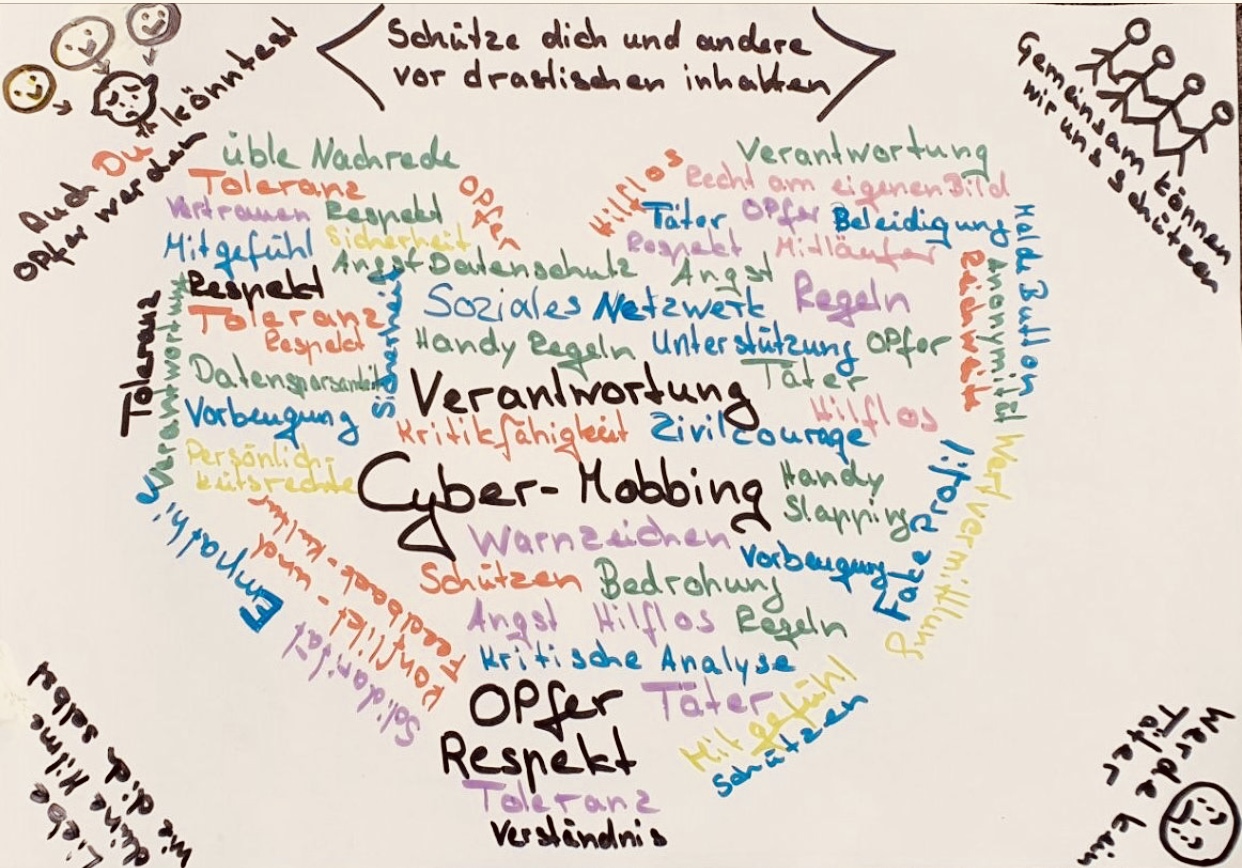 Schütze dich und andere
vor drastischen inhalten
Auch Du könntest
Opfer werden
Gemeinsam können
wir uns schützen
üble Nachrede
Toleranz
Vertrauen Respekt
Mitgefühl Sicherheit
Opfer
Hilflos
Verantwortung
Recht am eigenen Bild
Täter Opfer Beleidigung
Respekt Mitläufer
Angst Datenschutz Angst
Respekt
Soziales Netzwerk Regeln
Toleranz
Respekt
Handy Regeln Unterstützung Opfer
Datensparsamkeit
Sicherheit
Verantwortung Täter
Vorbeugung
Hilflos
Kritikfähigkeit Zivilcourage
Toleranz
Verantwortung
Reichweite
Anonymität
Melde Button
Persönlich-
keitsrechte
Cyber-Mobbing
Handy
Slapping
Warnzeichen
Vorbeugung
Fake Profil
Wertvermittlung
Empathie
Schützen Bedrohung
Konflikt- und
Feedback-Kultur
Solidarität
Angst Hilflos Regeln
Kritische Analyse
Opfer Täter
Mitgefühl
Schützen
Respekt
Toleranz
Verständnis
Liebe
deine
wie dich selbst
Werde kein
Täter